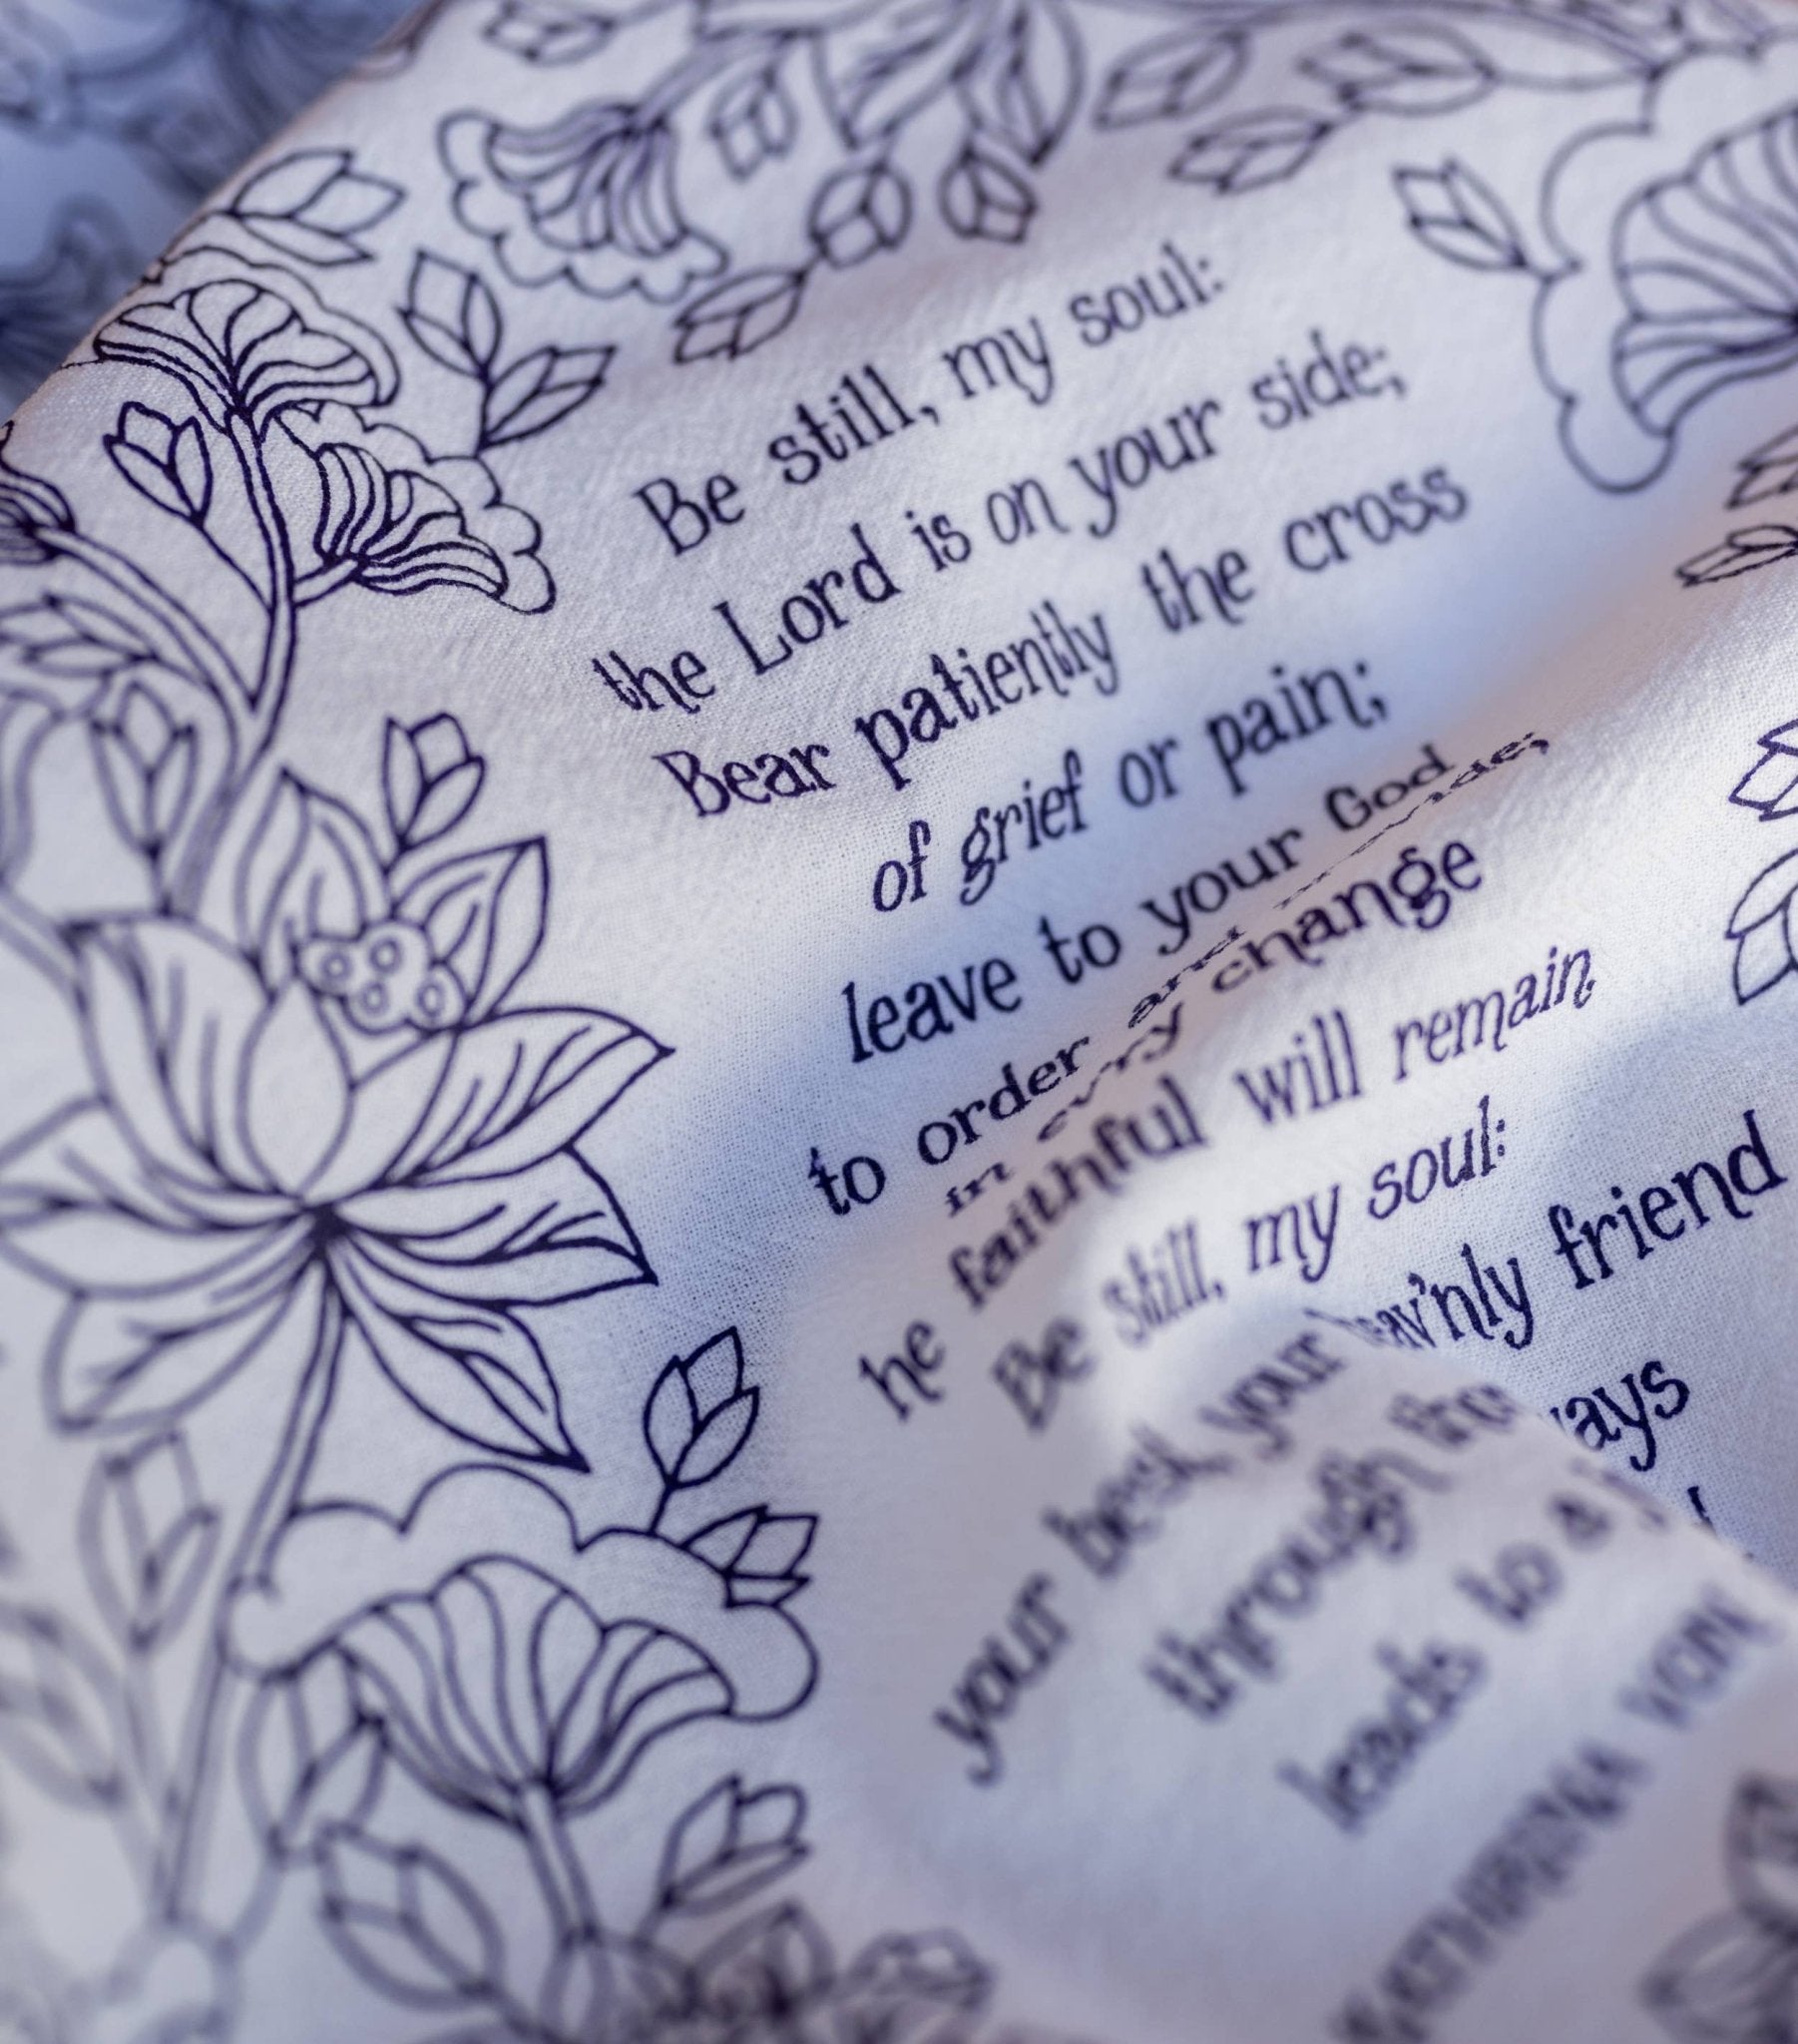 Be still, my soul:
the Lord is on your side;
Bear patiently the cross
of grief or pain;
leave to your God
to order and
in ev'ry change
he faithful will remain
Be still, my soul:
your best, your heav'nly friend
through
leads to a
KATHARINA VON